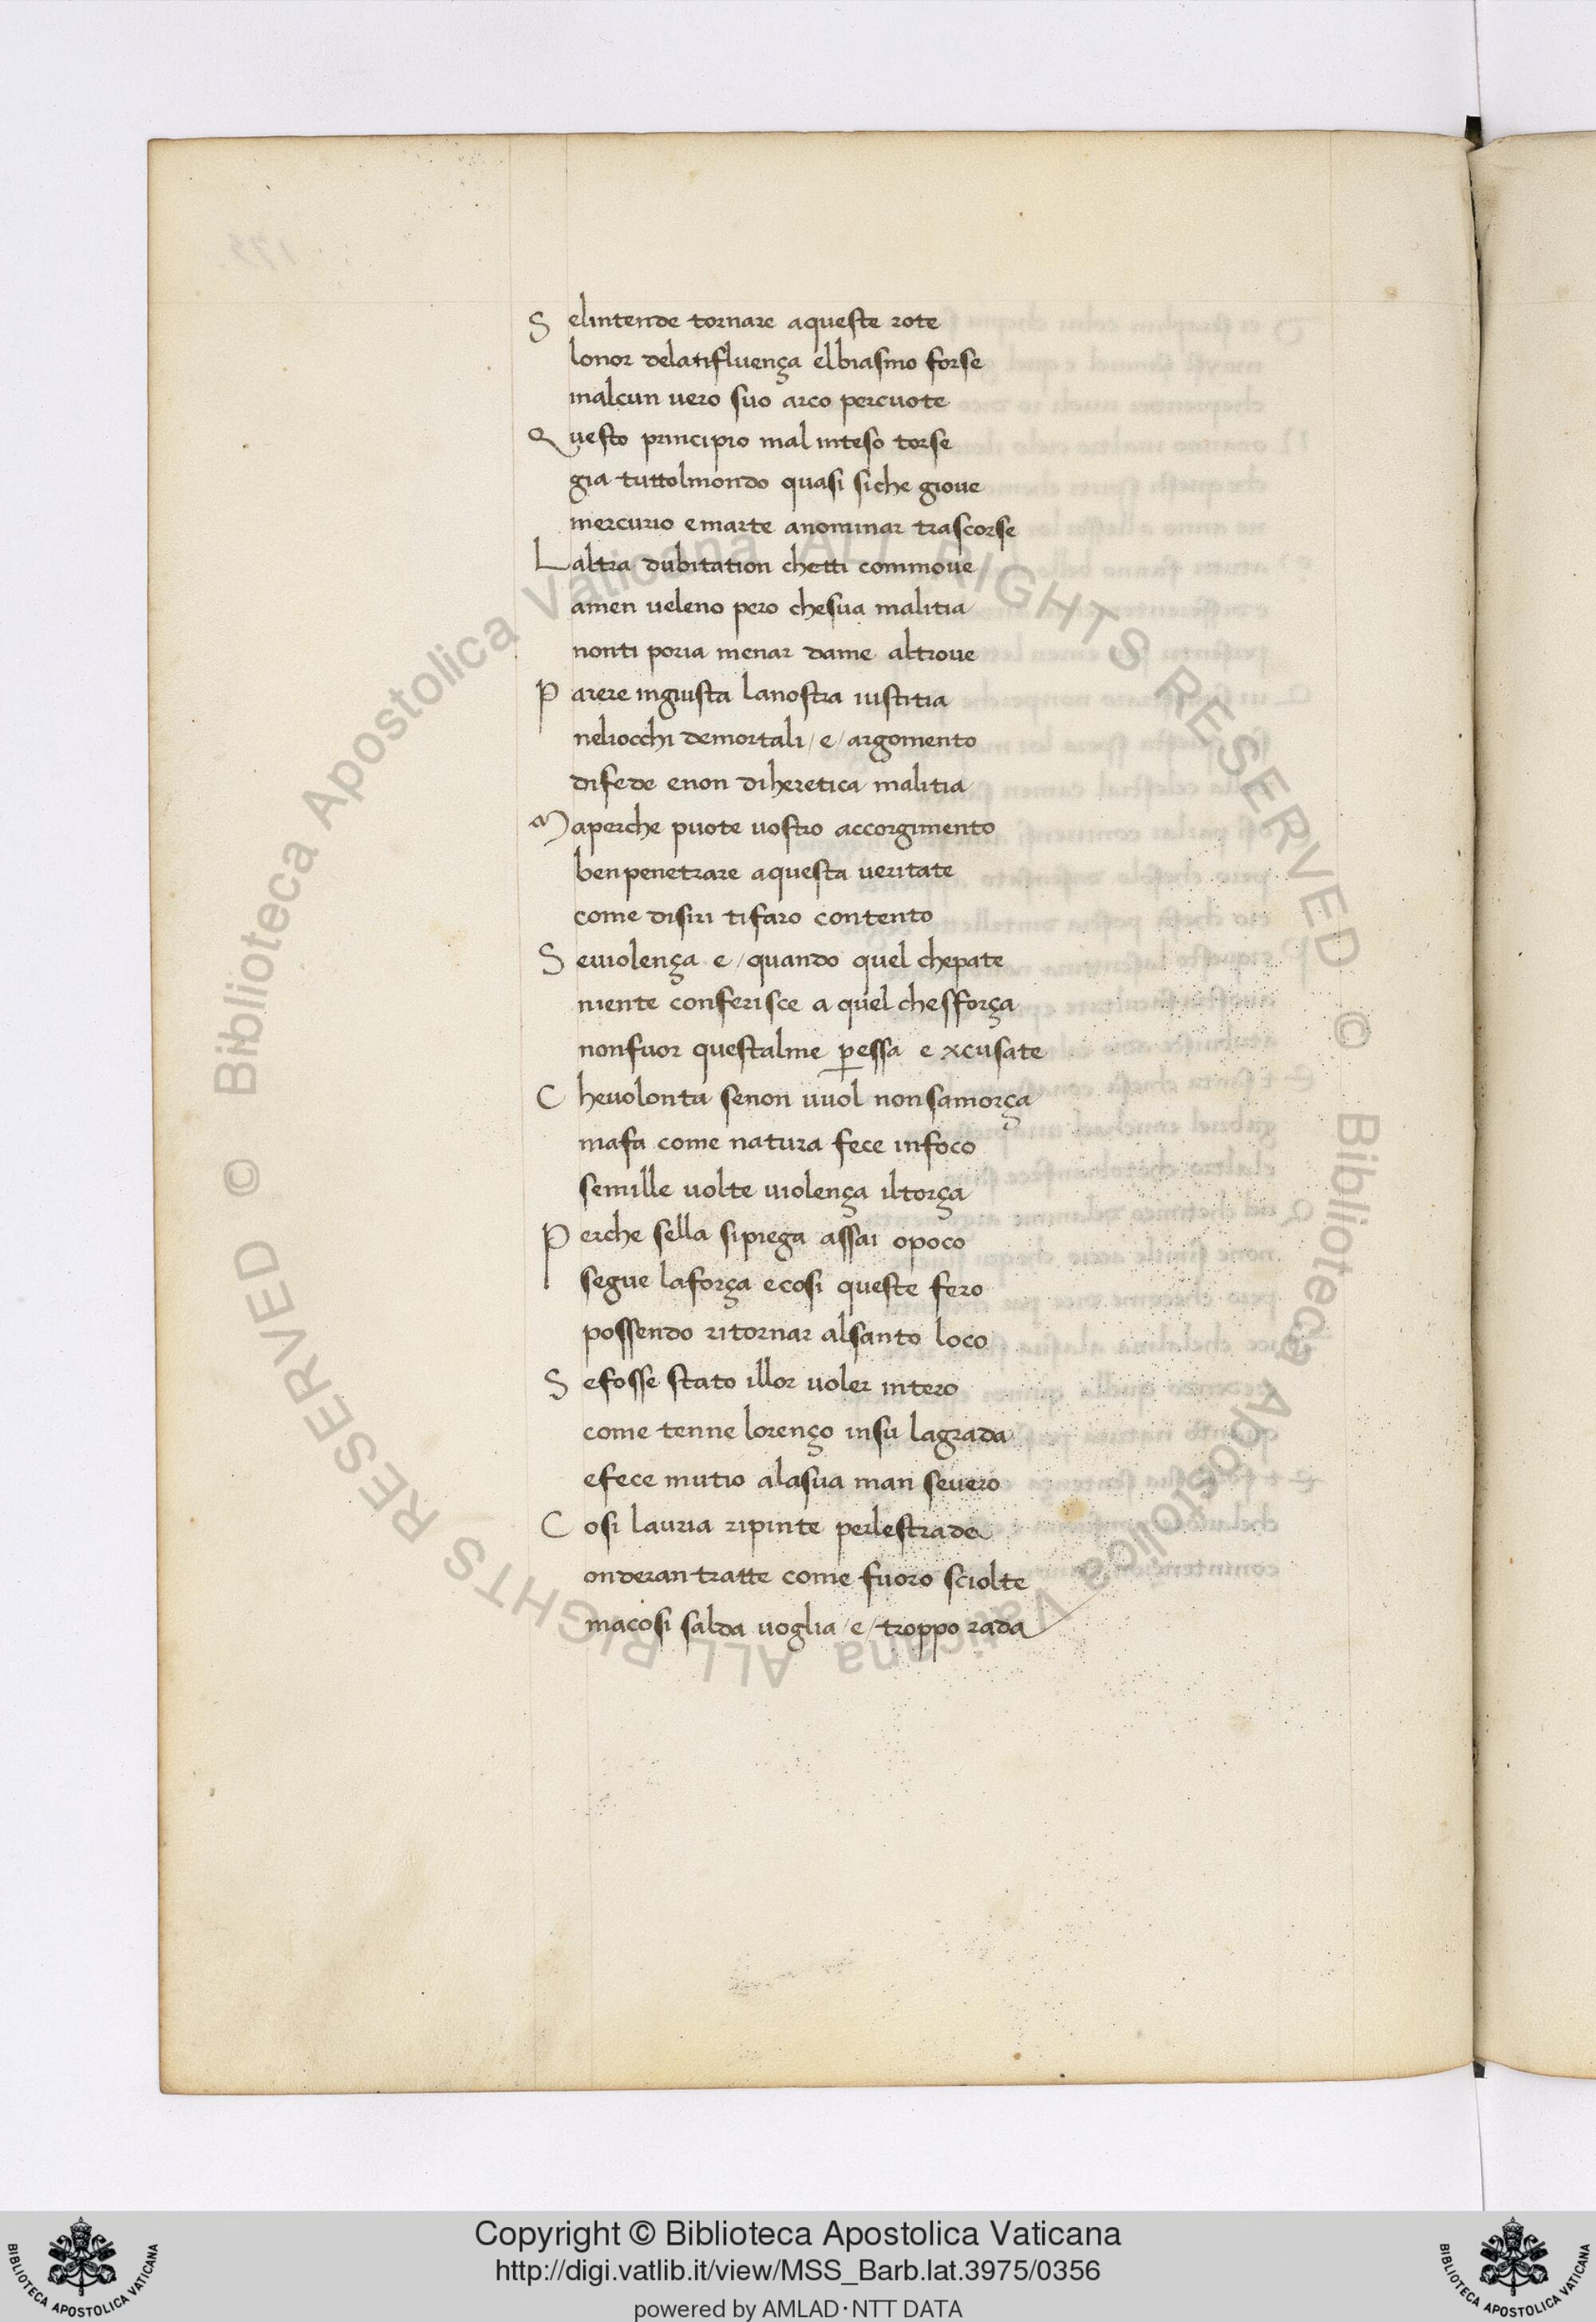 S elintende tornare aqueste rote
lonor delatifluença elbiasmo forse
inalcun uero suo arco percuote
Q uesto principio mal inteso torse
gia tuttolmondo quasi siche gioue
mercurio emarte anominar trascorse
L altra dubitation chetti commoue
amen ueleno pero chesua malitia
nonti poria menar dame altroue
P arere ingiusta lanostra iustitia
neliocchi demortali / e / argomento
difede enon diheretica malitia
M aperche puote uostro accorgimento
benpenetrare aquesta ueritate
come disiri tifaro contento
S euiolença e / quando quel chepate
niente conferisce a quel chessforça
nonfuor questalme p̱essa e xcusate
C heuolonta senon uuol nonsamorça
mafa come natura fece infoco
semille uolte uiolença iltorça
P erche sella sipiega assai opoco
segue laforça ecosi queste fero
possendo ritornar alsanto loco
S efosse stato illor uoler intero
come tenne lorenço insu lagrada
efece mutio alasua man seuero
C osi lauria ripinte perlestrada
onderan tratte come fuoro sciolte
macosi salda uoglia / e / troppo rada
© Biblioteca Apostolica Vaticana ALL RIGHTS RESERVED © Biblioteca Apostolica Vaticana ALL RIGHTS RESERVED
Copyright © Biblioteca Apostolica Vaticana
http://digi.vatlib.it/view/MSS_Barb.lat.3975/0356
powered by AMLAD・NTT DATA
BIBLIOTECA APOSTOLICA VATICANA
BIBLIOTECA APOSTOLICA VATICANA